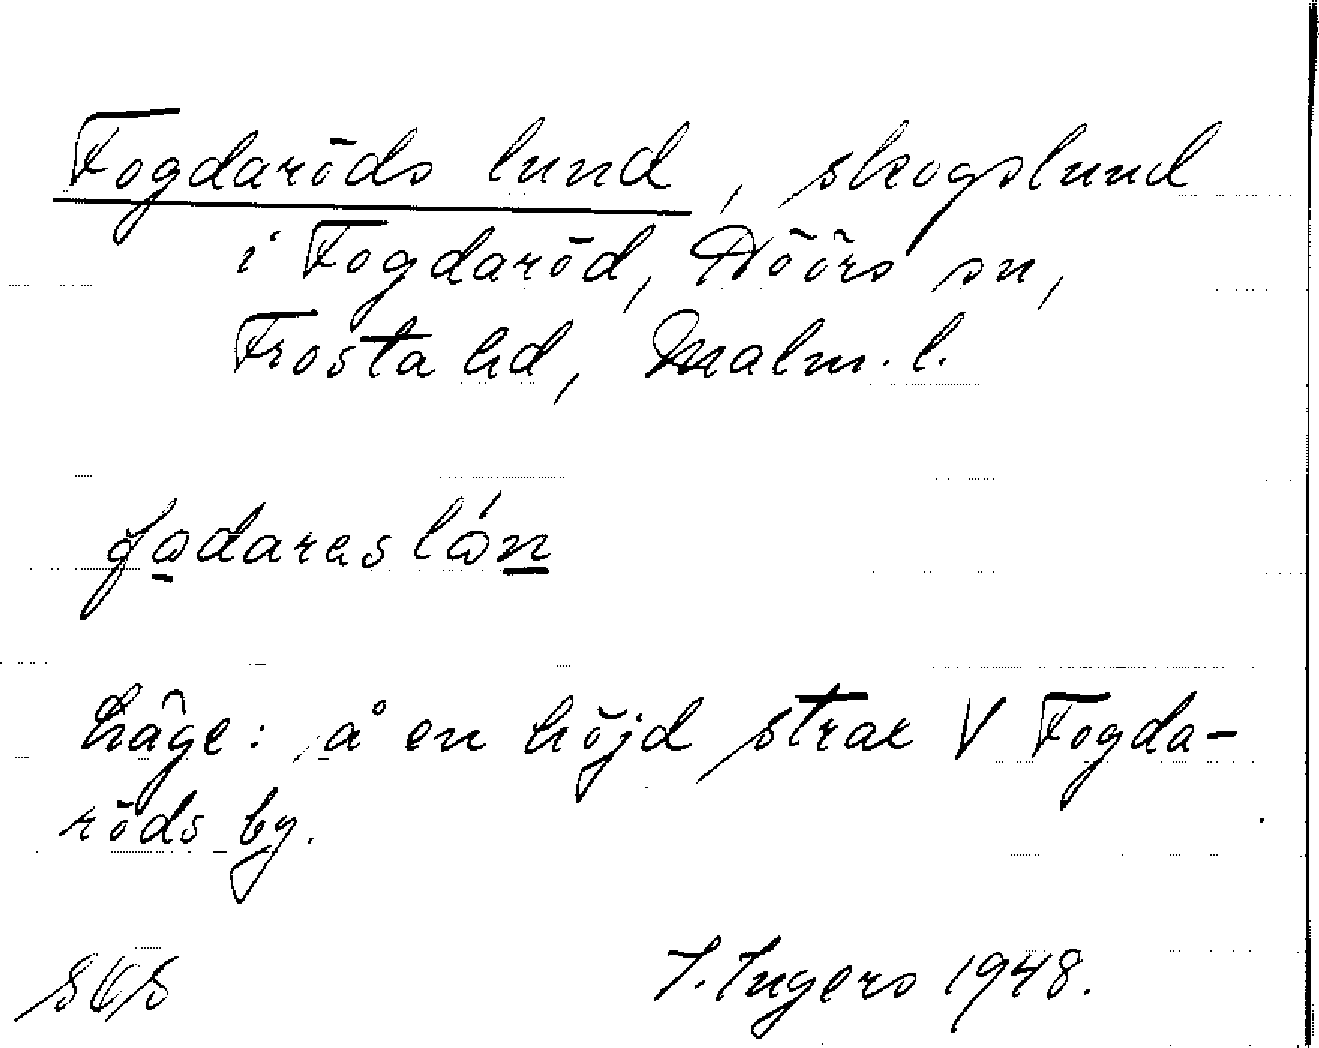 Fogdaröds lund, skogslund
i Fogdaröd, Höörs sn,
Frosta hd, Malm. l.
Läge: å en höjd strax V Fogda-
röds by.
I. Ingers 1948.